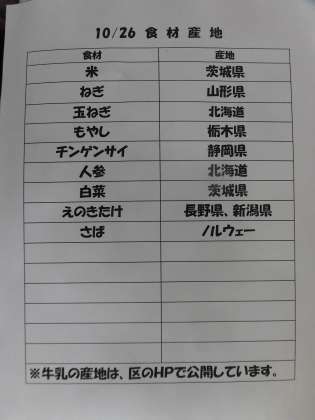 10/26 食材産地
食材 産地
米 茨城県
ねぎ 山形県
玉ねぎ 北海道
もやし 栃木県
チンゲンサイ 静岡県
人参 北海道
白菜 茨城県
えのきたけ 長野県、新潟県
さば ノルウェー
※牛乳の産地は、区のHPで公開しています。